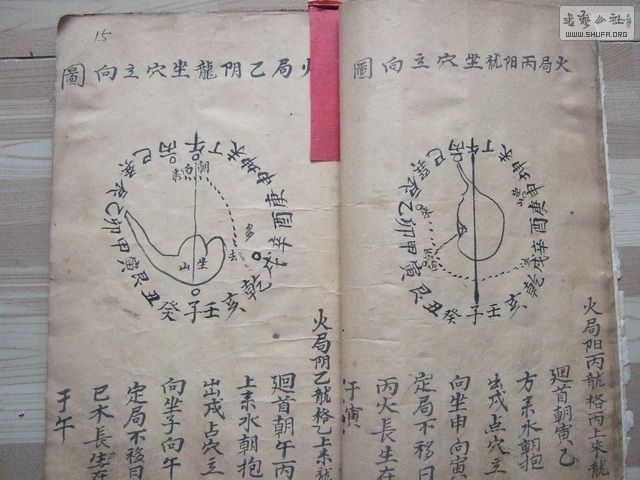 火局丙阳龍坐穴立向圖
午丁未坤申庚酉辛戌乾亥壬子癸丑艮寅甲卯乙辰巽巳丙
火局阳丙龍格丙上来龍
廻首朝寅乙
方来水朝抱
出戌点穴立
向坐申向寅
定局不移曰
丙火長生在
午寅
15
火局乙阴龍坐穴立向圖
午丁未坤申庚酉辛戌乾亥壬子癸丑艮寅甲卯乙辰巽巳丙
坐山
去
火局阴乙龍格乙上来龍
廻首朝午丙
上来水朝抱
出戌点穴立
向坐子向午
定局不移曰
已木長生在
于午
WWW.SHUFA.ORG